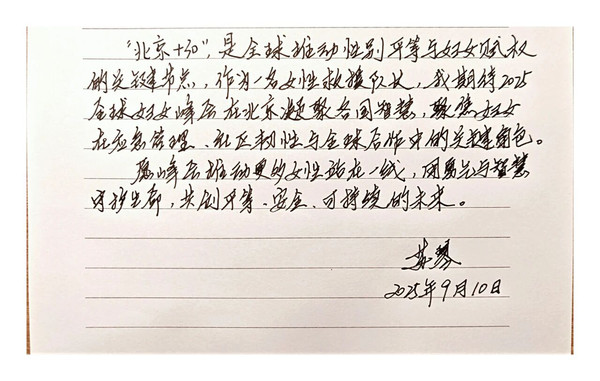 “北京+30”，是全球推动性别平等与妇女赋权
的关键节点，作为一名女性救援队长，我期待2025
全球妇女峰会在北京凝聚各国智慧，聚焦妇女
在应急管理、社区韧性与全球合作中的关键角色。
愿峰会推动更多女性站在一线，用勇气与智慧
守护生命，共创平等、安全、可持续的未来。
苏琴
2025年9月10日